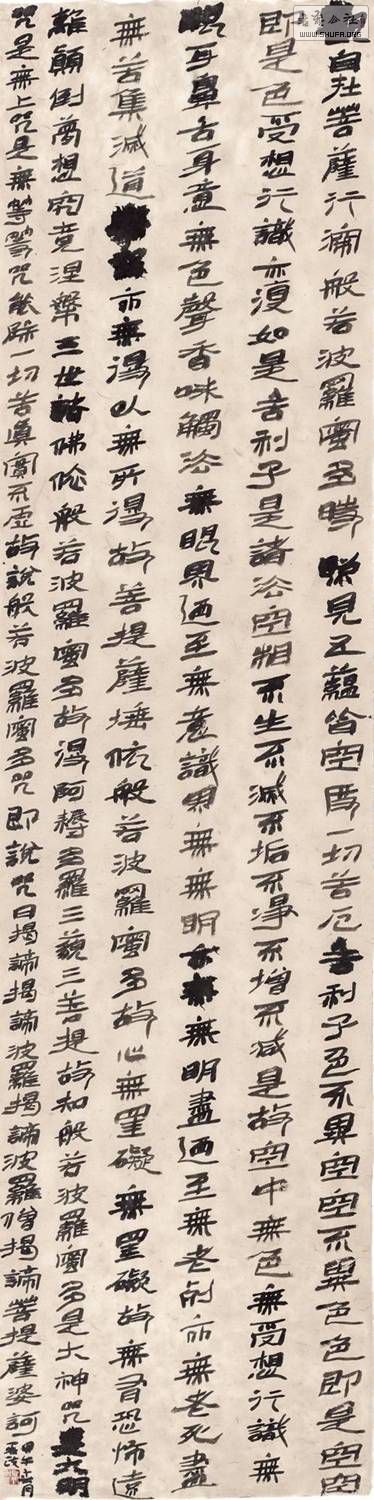 自在菩薩行深般若波羅蜜多時照見五蘊皆空度一切苦厄舍利子色不異空空不異色色即是空空
即是色受想行識亦復如是舍利子是諸法空相不生不滅不垢不淨不增不減是故空中無色無受想行識無
眼耳鼻舌身意無色聲香味觸法無眼界迺至無意識界無無明亦無無明盡迺至無老死亦無老死盡
無苦集滅道無智亦無得以無所得故菩提薩埵依般若波羅蜜多故心無罣礙無罣礙故無有恐怖遠
離顛倒夢想究竟涅槃三世諸佛依般若波羅蜜多故得阿耨多羅三藐三菩提故知般若波羅蜜多是大神咒是大明
咒是無上咒是無等等咒能除一切苦真實不虛故說般若波羅蜜多咒即說咒曰揭諦揭諦波羅揭諦波羅僧揭諦菩提薩婆訶
甲午
公社
WWW.SHUFA.ORG